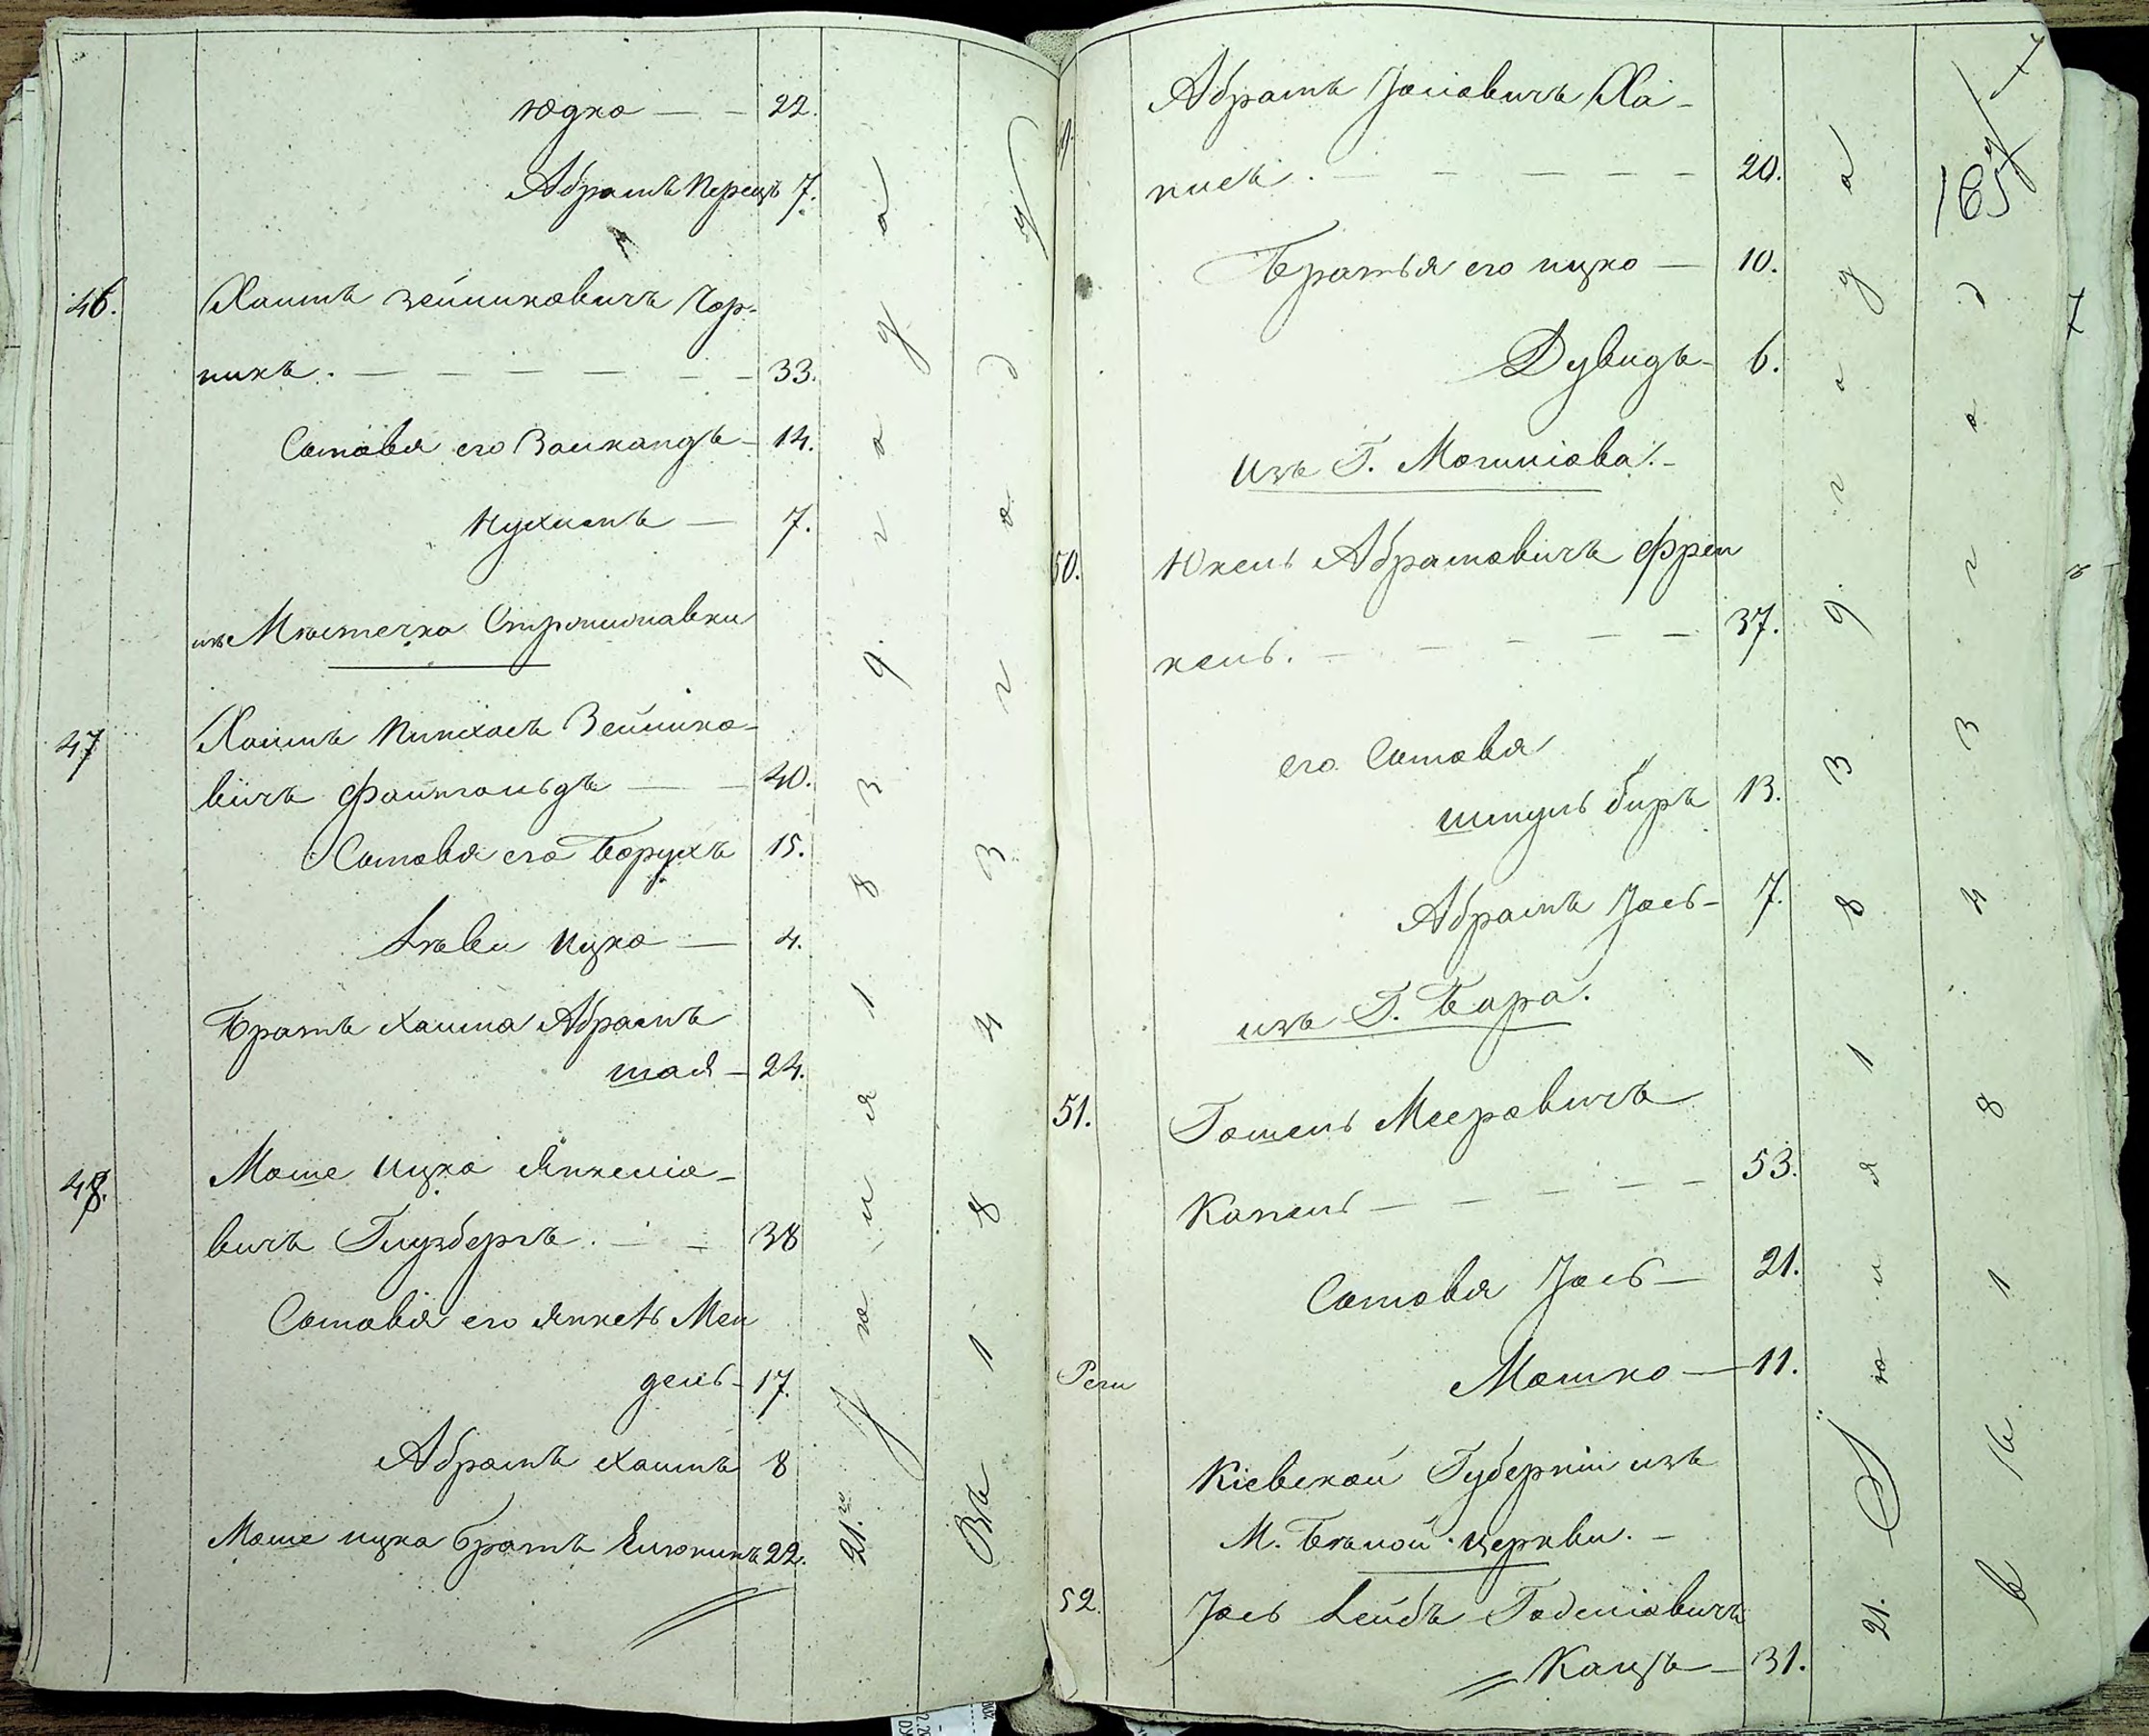 Юдко — — 22.
Абрамъ Перецъ 7.
46. Хаимъ Зейликовичъ Гор-
никъ. — — — — — — 33.
Сыновья его Залкандъ — 14.
Нухимъ — 7.
изъ Мѣстечка Стрижавки
47 Хаимъ Пинхасъ Зейлико-
вичъ Файнгольдъ — — 40.
Сыновья его Борухъ 15.
Лѣви Ицко — 4.
Братъ Хаима Абрамъ
шая — 24.
48. Моше Ицко Янкеліо-
вичъ Глузбергъ. — — 38
Сыновья его Янкель Мен
дель — 17.
Абрамъ Хаимъ 8
Моше Ицка братъ Елюкимъ 22.
21.го Іюля 1839 года
Въ 1843 году
Абрамъ Іосіовичъ Ха-
писъ. — — — — — 20.
Братья его Ицко — 10.
Дувидъ — 6.
Изъ Г. Могиліова. —
50. Юкель Абрамовичъ Френ
кель. — — — — — 37.
его Сыновья
Шмуль Биръ 13.
Абрамъ Іось — 7.
изъ Г. Бара.
51. Гошель Мееровичъ
Копель — — — — — 53.
Сыновья Іось — 21.
Мошко — 11.
Кіевской Губерніи изъ
М. Бѣлой Церкви. —
52. Іось Лейбъ Годеліовичъ
Кацъ — 31.
21. Іюля 1839 года
Въ 1843 году
165